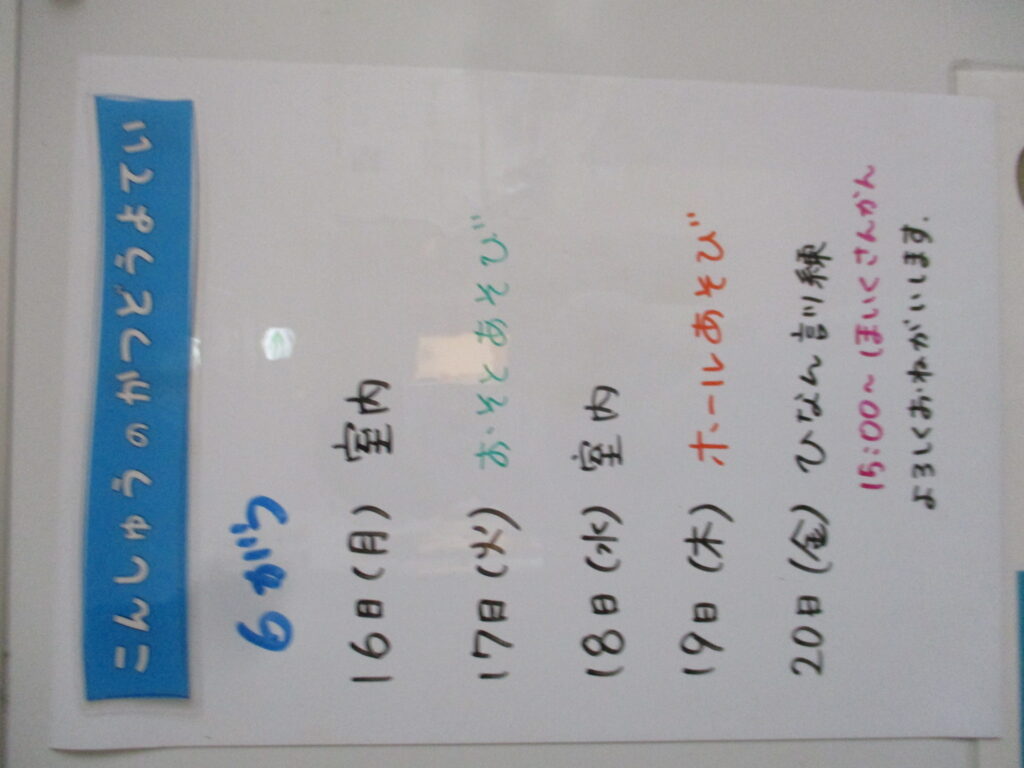 こんしゅうのかつどうよてい
6がつ
16日(月) 室内
17日(火) おそとあそび
18日(水) 室内
19日(木) ホールあそび
20日(金) ひなん訓練
15:00～ほいくさんかん
よろしくおねがいします.